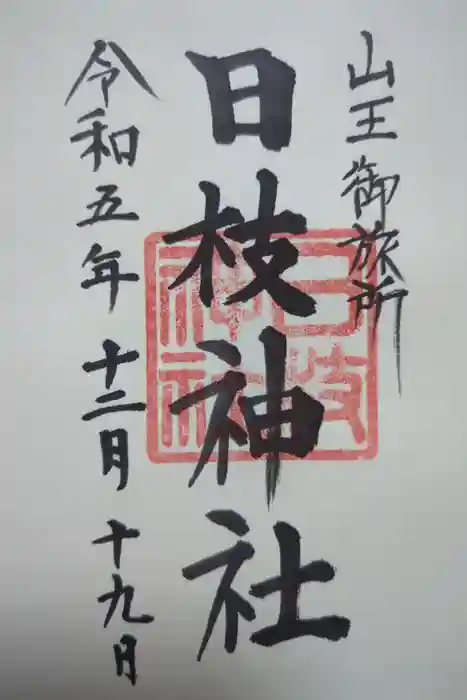 山王御旅所
日枝神社
令和五年 十二月 十九月
日枝
神社